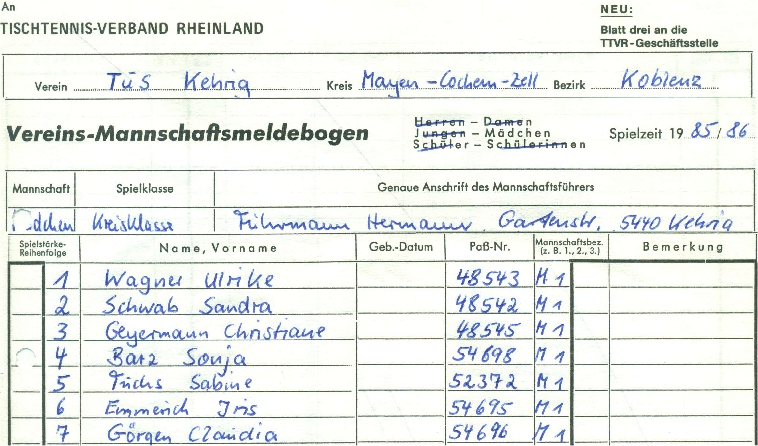 An
TISCHTENNIS-VERBAND RHEINLAND
NEU:
Blatt drei an die
TTVR-Geschäftsstelle
Verein TUS Kehrig Kreis Mayen-Cochem-Zell Bezirk Koblenz
Vereins-Mannschaftsmeldebogen
Herren – Damen
Jungen – Mädchen
Schüler – Schülerinnen
Spielzeit 19 85/86
Mannschaft Spielklasse Genaue Anschrift des Mannschaftsführers
dchen Kreisklasse Führmann Hermann, Gartenstr, 5440 Kehrig
Spielstärke-Reihenfolge Name, Vorname Geb.-Datum Paß-Nr. Mannschaftsbez. (z. B. 1., 2., 3.) Bemerkung
1 Wagner Ulrike 48543 M1
2 Schwab Sandra 48542 M1
3 Geyermann Christiane 48545 M1
4 Barz Sonja 54698 M1
5 Fuchs Sabine 52372 M1
6 Emmerich Iris 54695 M1
7 Görgen Claudia 54696 M1